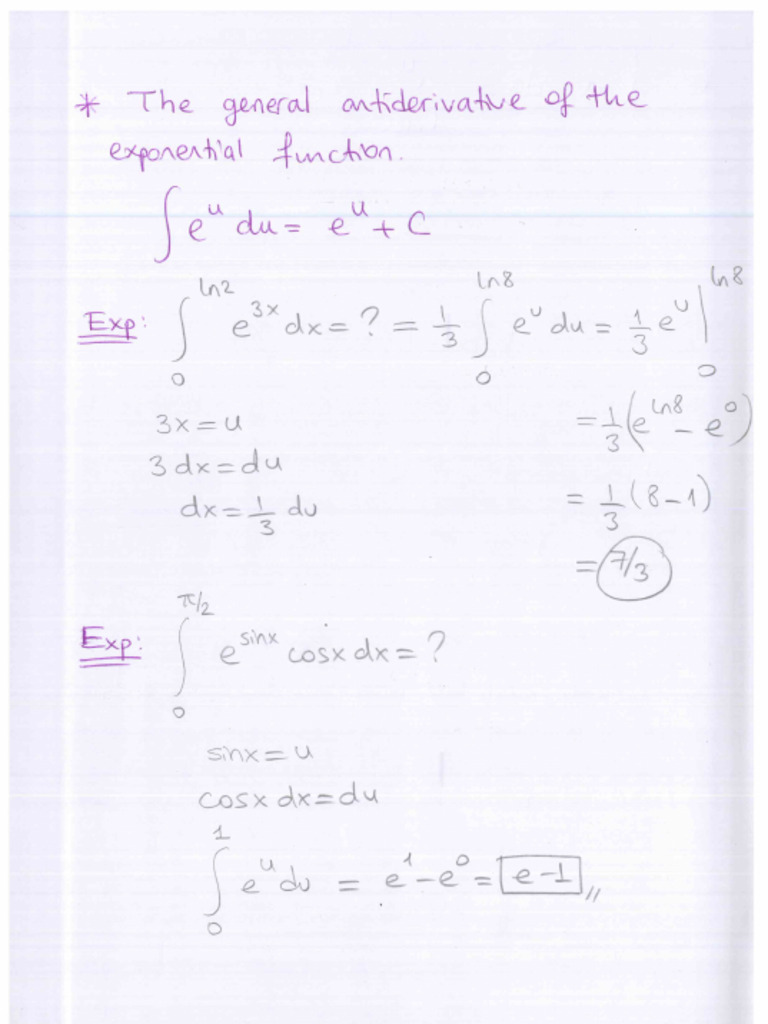 * The general antiderivative of the
exponential function.
∫ e^u du = e^u + C
Exp: ∫_0^{ln2} e^{3x} dx = ? = 1/3 ∫_0^{ln8} e^u du = 1/3 e^u |_0^{ln8}
3x = u
= 1/3 (e^{ln8} - e^0)
3 dx = du
dx = 1/3 du
= 1/3 (8 - 1)
= 7/3
Exp: ∫_0^{π/2} e^{sinx} cosx dx = ?
sinx = u
cosx dx = du
∫_0^1 e^u du = e^1 - e^0 = e - 1 //